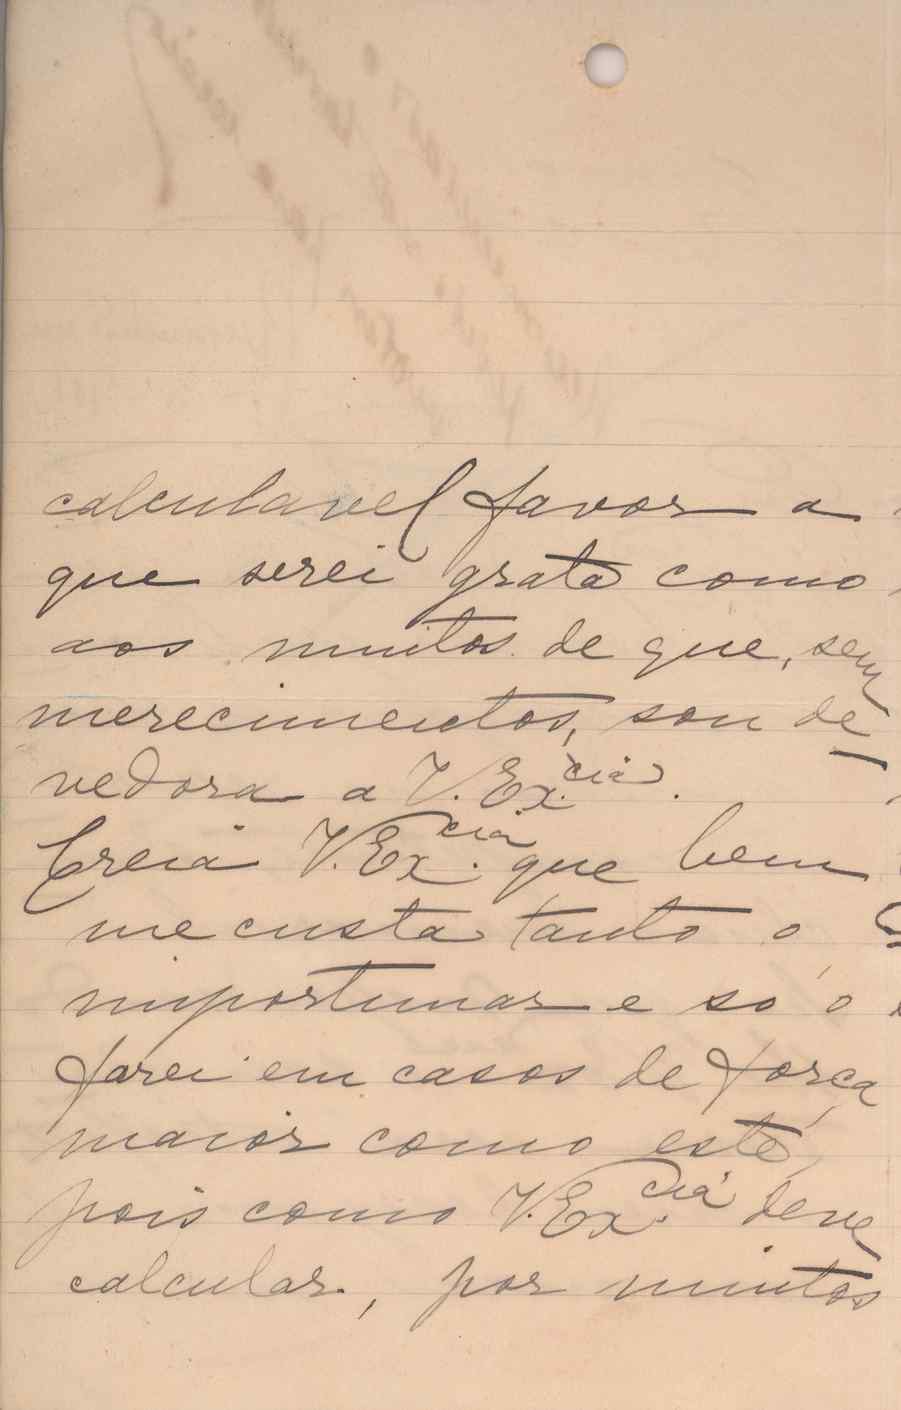 calculavel favor a
que serei grata como
aos muitos de que, sem
merecimentos, sou de
vedora a V. Ex.cia.
Creia V. Ex.cia que bem
me custa tanto o
importunar e só o
farei em casos de força
maior como este,
pois como V. Ex.cia deve
calcular, por muitos